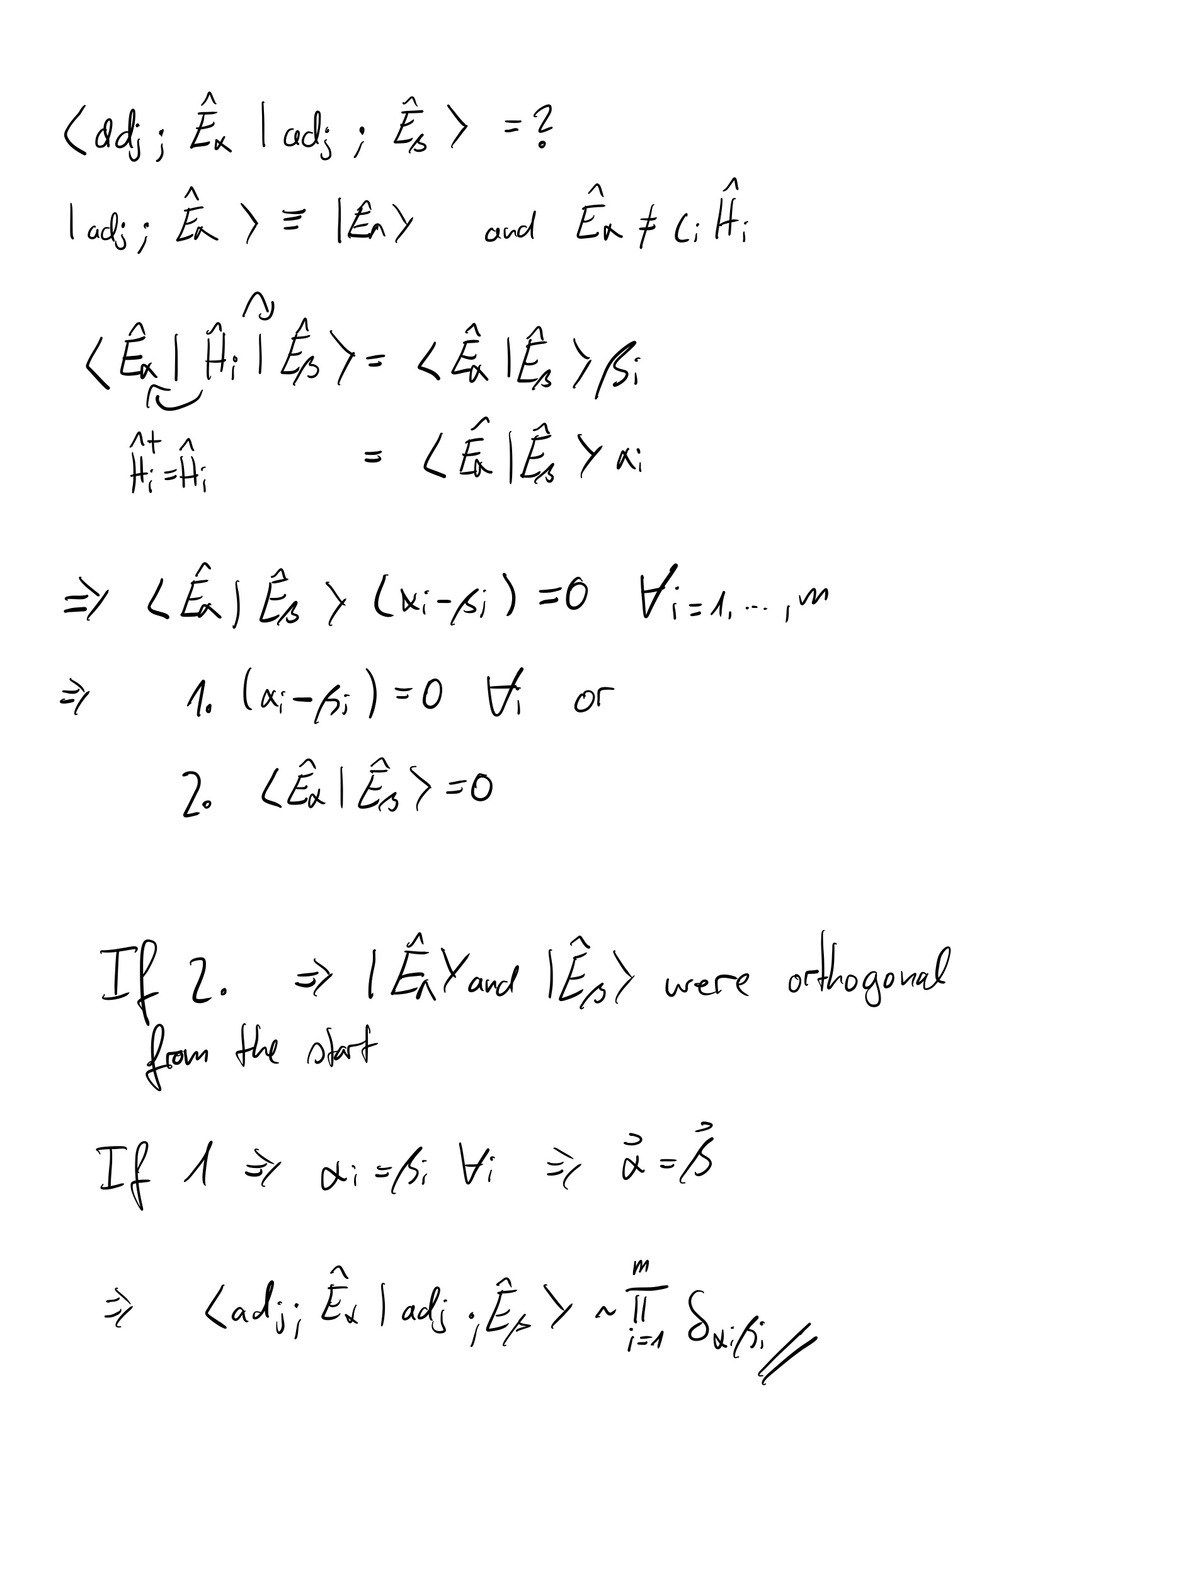 ⟨adj; Ê_α | adj; Ê_β⟩ = ?
|adj; Ê_α⟩ ≡ |Ê_α⟩ and Ê_α ≠ c_i Ĥ_i
⟨Ê_α | Ĥ_i | Ê_β⟩ = ⟨Ê_α | Ê_β⟩ β_i
Ĥ_i^+ = Ĥ_i = ⟨Ê_α | Ê_β⟩ α_i
⇒ ⟨Ê_α | Ê_β⟩ (α_i - β_i) = 0 ∀ i = 1, ..., m
⇒ 1. (α_i - β_i) = 0 ∀i or
2. ⟨Ê_α | Ê_β⟩ = 0
If 2. ⇒ |Ê_α⟩ and |Ê_β⟩ were orthogonal
from the start
If 1 ⇒ α_i = β_i ∀i ⇒ α⃗ = β⃗
⇒ ⟨adj; Ê_α | adj; Ê_β⟩ ~ ∏_{i=1}^{m} δ_{α_i β_i} //